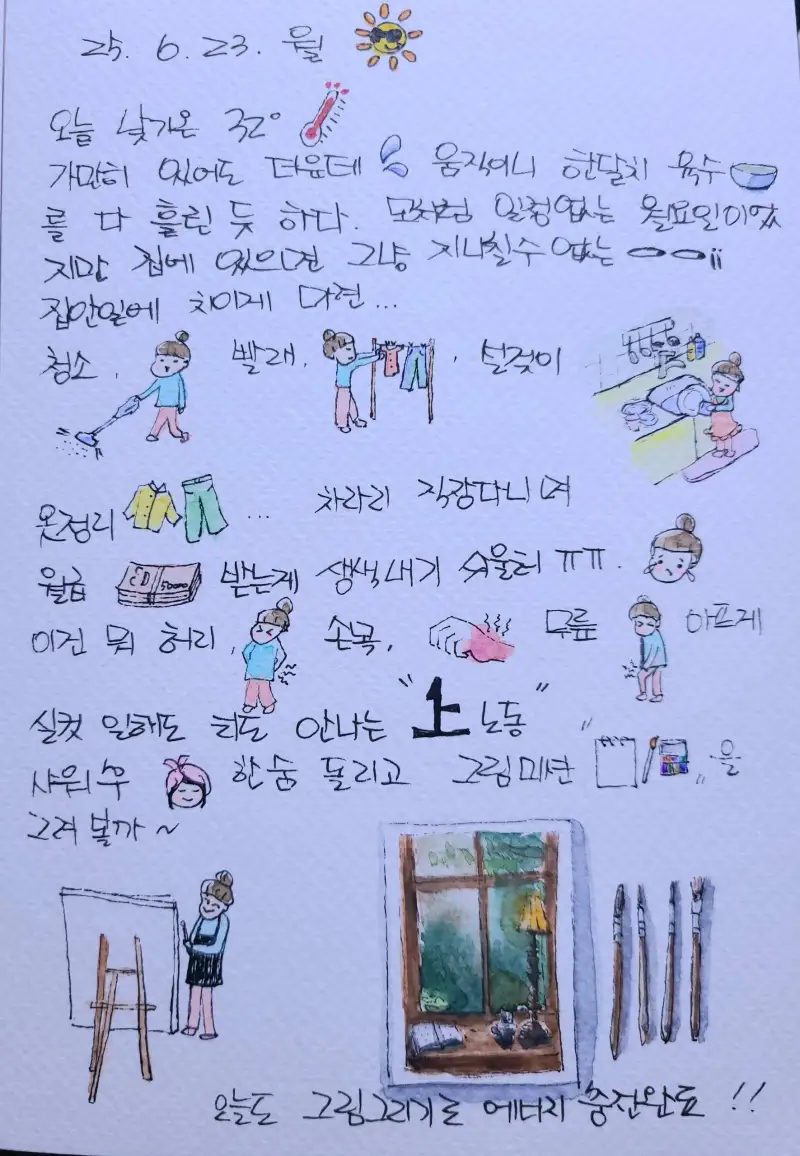 25. 6. 23. 월
오늘 낮기온 32°
가만히 있어도 더운데 움직이니 한달치 육수
를 다 흘린 듯 하다. 모처럼 일정없는 월요일이었
지만 집에 있으면 그냥 지나칠수 없는
집안일에 치이게 마련...
청소, 빨래, 설겆이
옷정리 ... 차라리 직장다니며
월급 50000 받는게 생색내기 쉬울터 ㅠㅠ.
이건 뭐 허리, 손목, 무릎 아프게
실컷 일해도 티도 안나는 "上노동"
샤워후 한숨 돌리고 그림미션 " "을
그려볼까~
오늘도 그림그리기로 에너지 충전완료!!